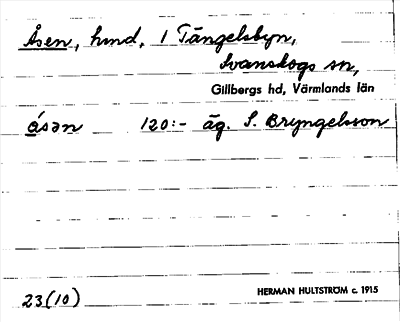 Åsen, hmd, i Tängelsbyn,
Svanskogs sn,
Gillbergs hd, Värmlands län
ǻsən 120:- äg. S. Bryngelsson
23(10) HERMAN HULTSTRÖM c. 1915